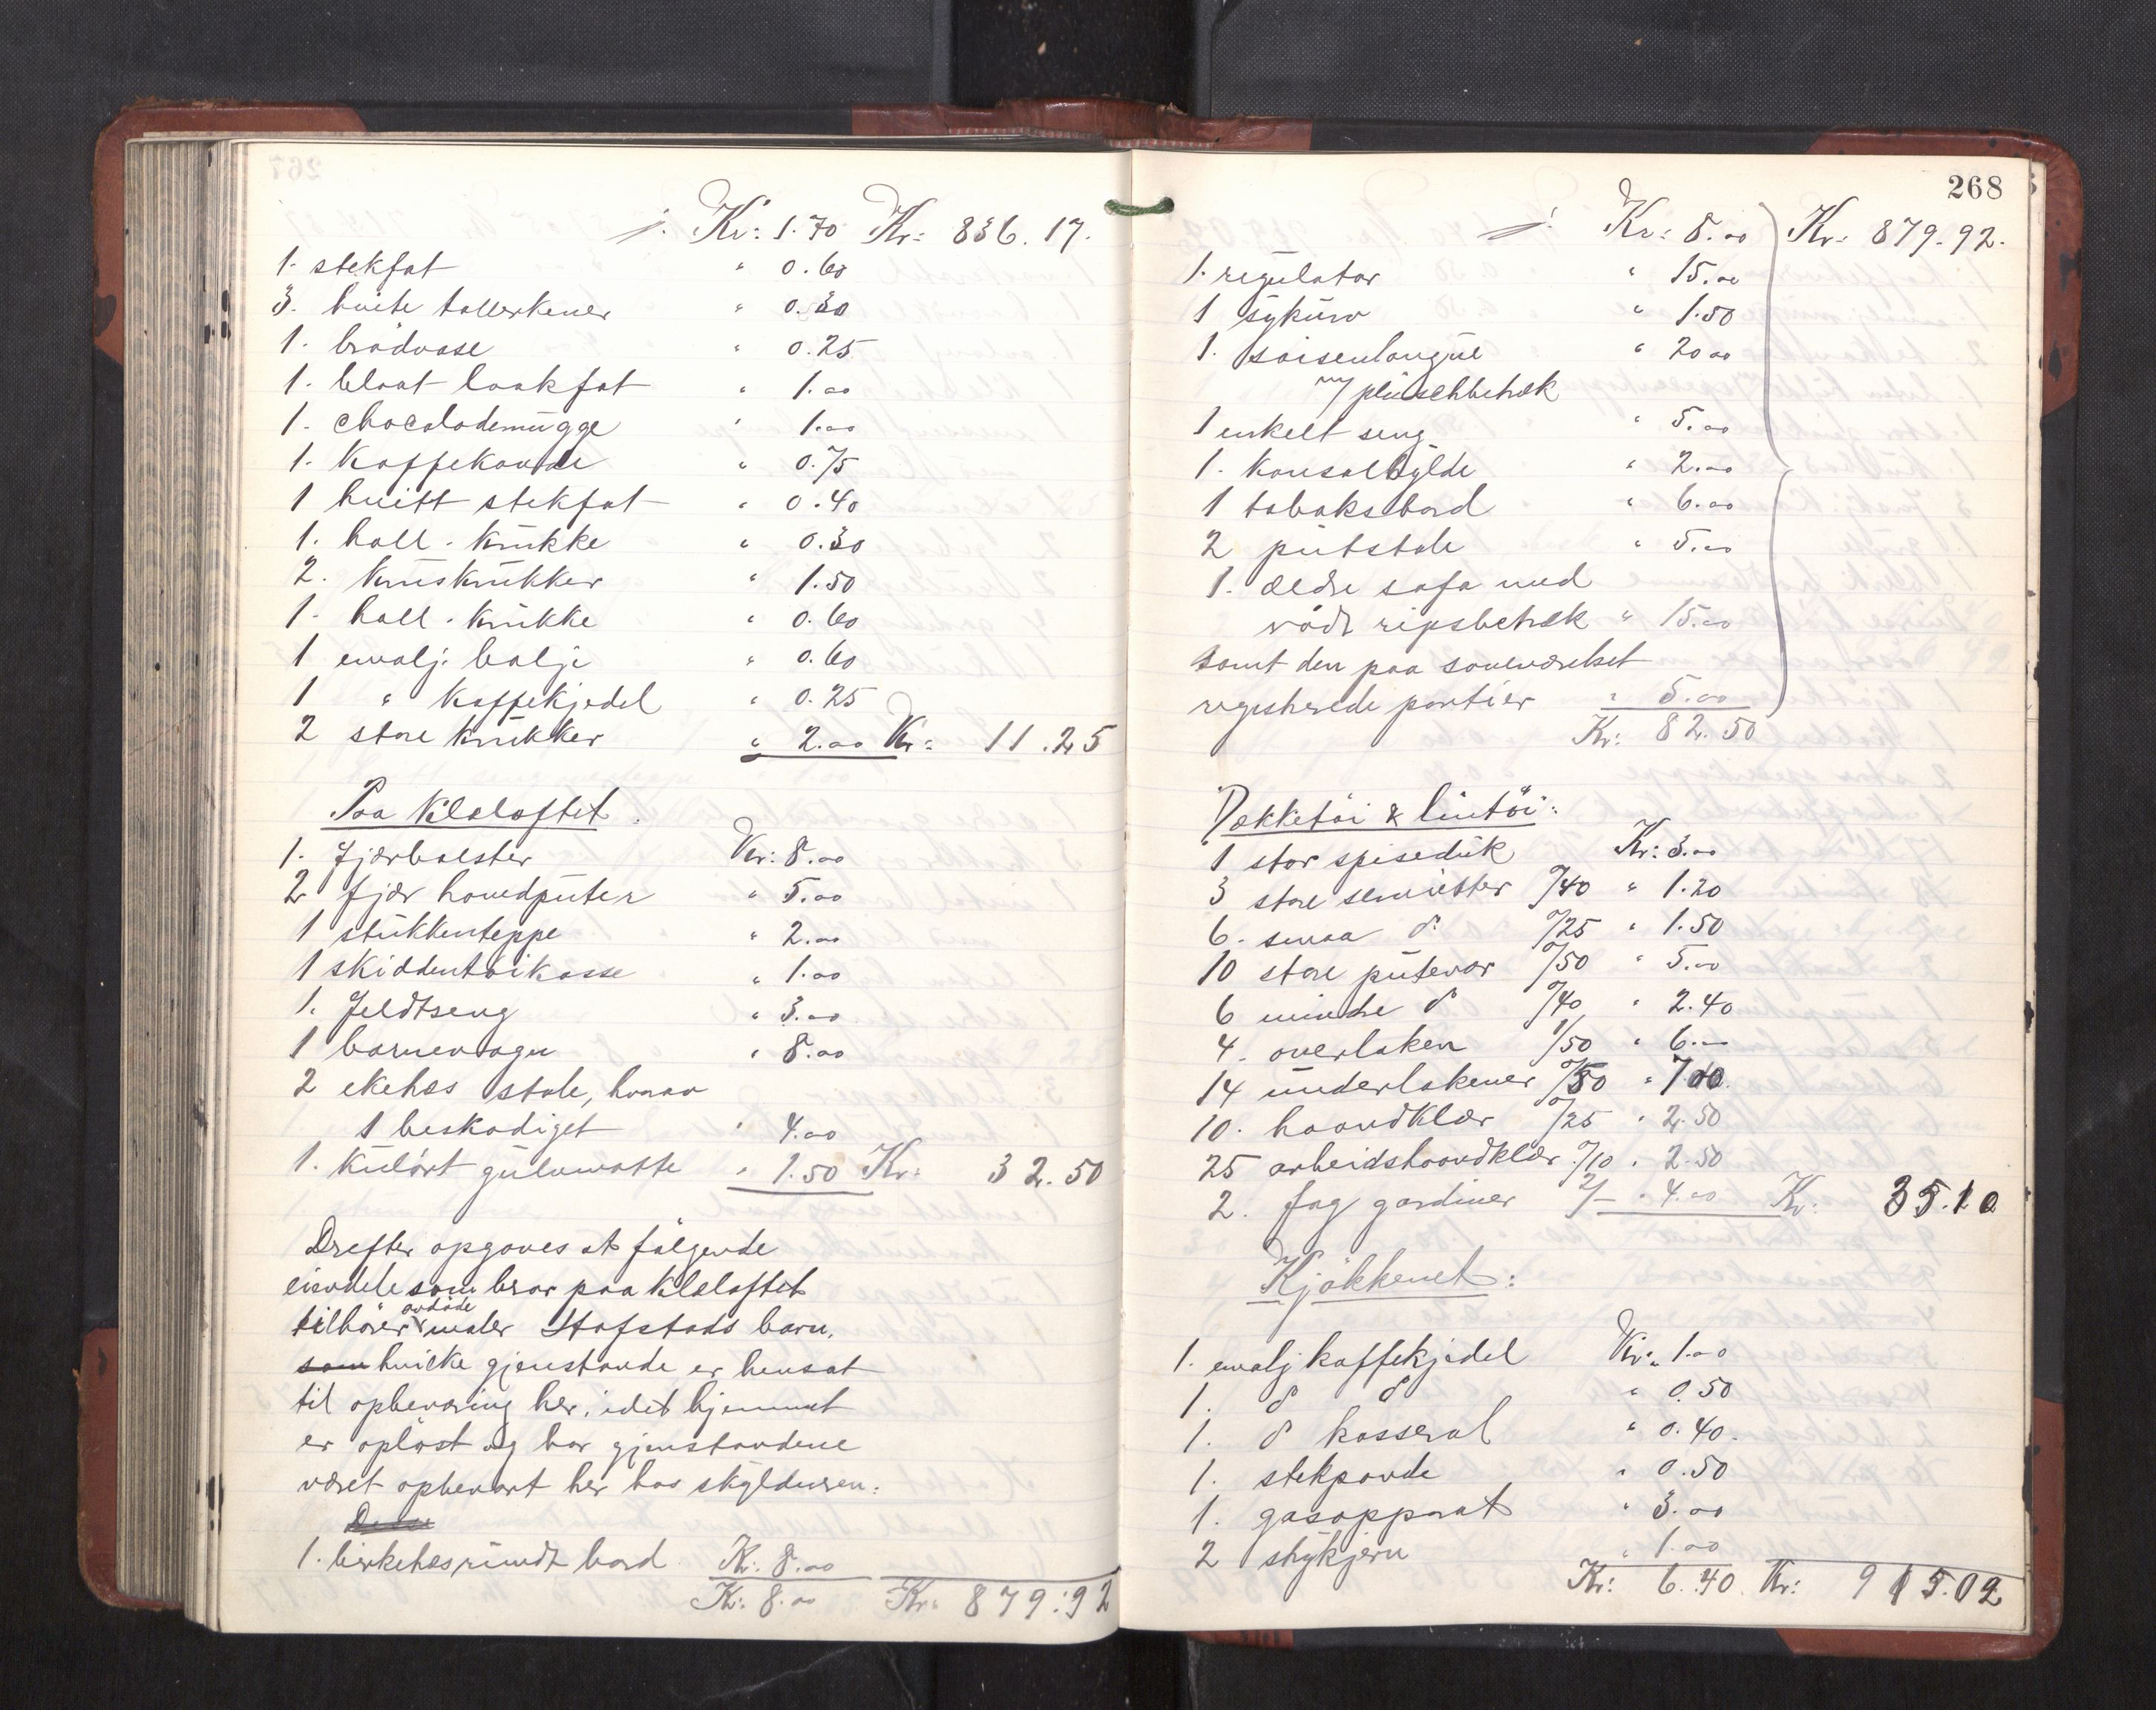 j. Kr: 1.70 Kr: 836.17.
1. stekfat " 0.60
3. hvite tallerkener " 0.30
1. brödvase " 0.25
1. blaat laakfat " 1.00
1. chocolademügge " 1.00
1. Kaffekande " 0.75
1 hvitt stekfat " 0.40
1. holl. Krükke " 0.30
2. Krüskrükker " 1.50
1. holl. Krükke " 0.60
1 emalj. balje " 0.60
1 " Kaffekjedel " 0.25
2 store krükker " 2.00 Kr: 11.25
Paa Klæloftet.
1. fjærbolster Kr: 8.00
2 fjær hovedpüter " 5.00
1 stükkenteppe " 2.00
1 skiddentøikasse " 1.00
1. Feldtseng " 3.00
1 barnevogn " 8.00
2 ekehæs stole, hvorav
1 beskadiget " 4.00
1. Külørt gülvmatte " 1.50 Kr: 32.50
Drefter opgaves at følgende
eiendele som beror paa Klæloftet
tilhører avdøde maler Stafstads barn,
som hvilke gjenstande er hensat
til opbevaring her, idet hjemmet
er opløst og har gjenstandene
været opbevart her hos skyldneren:
1. birkehæs ründt bord Kr: 8.00
Kr: 8.00 Kr: 879.92
268
j. Kr: 8.00 Kr: 879.92.
1. regülator " 15.00
1 sykürv " 1.50
1. saisenlongüe " 20 00
m/ plüschbetræk
1 enkelt seng " 5.00
1. Konsolhylde " 2.00
1 tobaksbord " 6.00
2 pütstole " 5.00
1. ældre sofa med
rødt ripsbetræk " 15.00
samt den paa soveværelset
registrerede portier " 5.00
Kr: 82.50
Dækketøi & lintöi:
1 stor spisedük Kr: 3.00
3 store servietter 0/40 " 1.20
6. smaa do 0/25 " 1.50
10 store pütevar 0/50 " 5.00
6 mindre do 0/40 " 2.40
4. overlaken 1/50 " 6.—
14 ünderlakener 0/50 " 7.00.
10. haandklær 0/25 " 2.50
25 arbeidshaandklær 0/10 " 2.50
2. fag gardiner 2/— " 4.00 Kr: 35.10
Kjøkkenet:
1. emalj kaffekjedel Kr: 1.00
1. do do " 0.50
1. do kasserol " 0.40.
1. stekpande " 0.50
1. gasapparat " 3.00
2 strykjern " 1.00
Kr: 6.40 Kr: 915.02